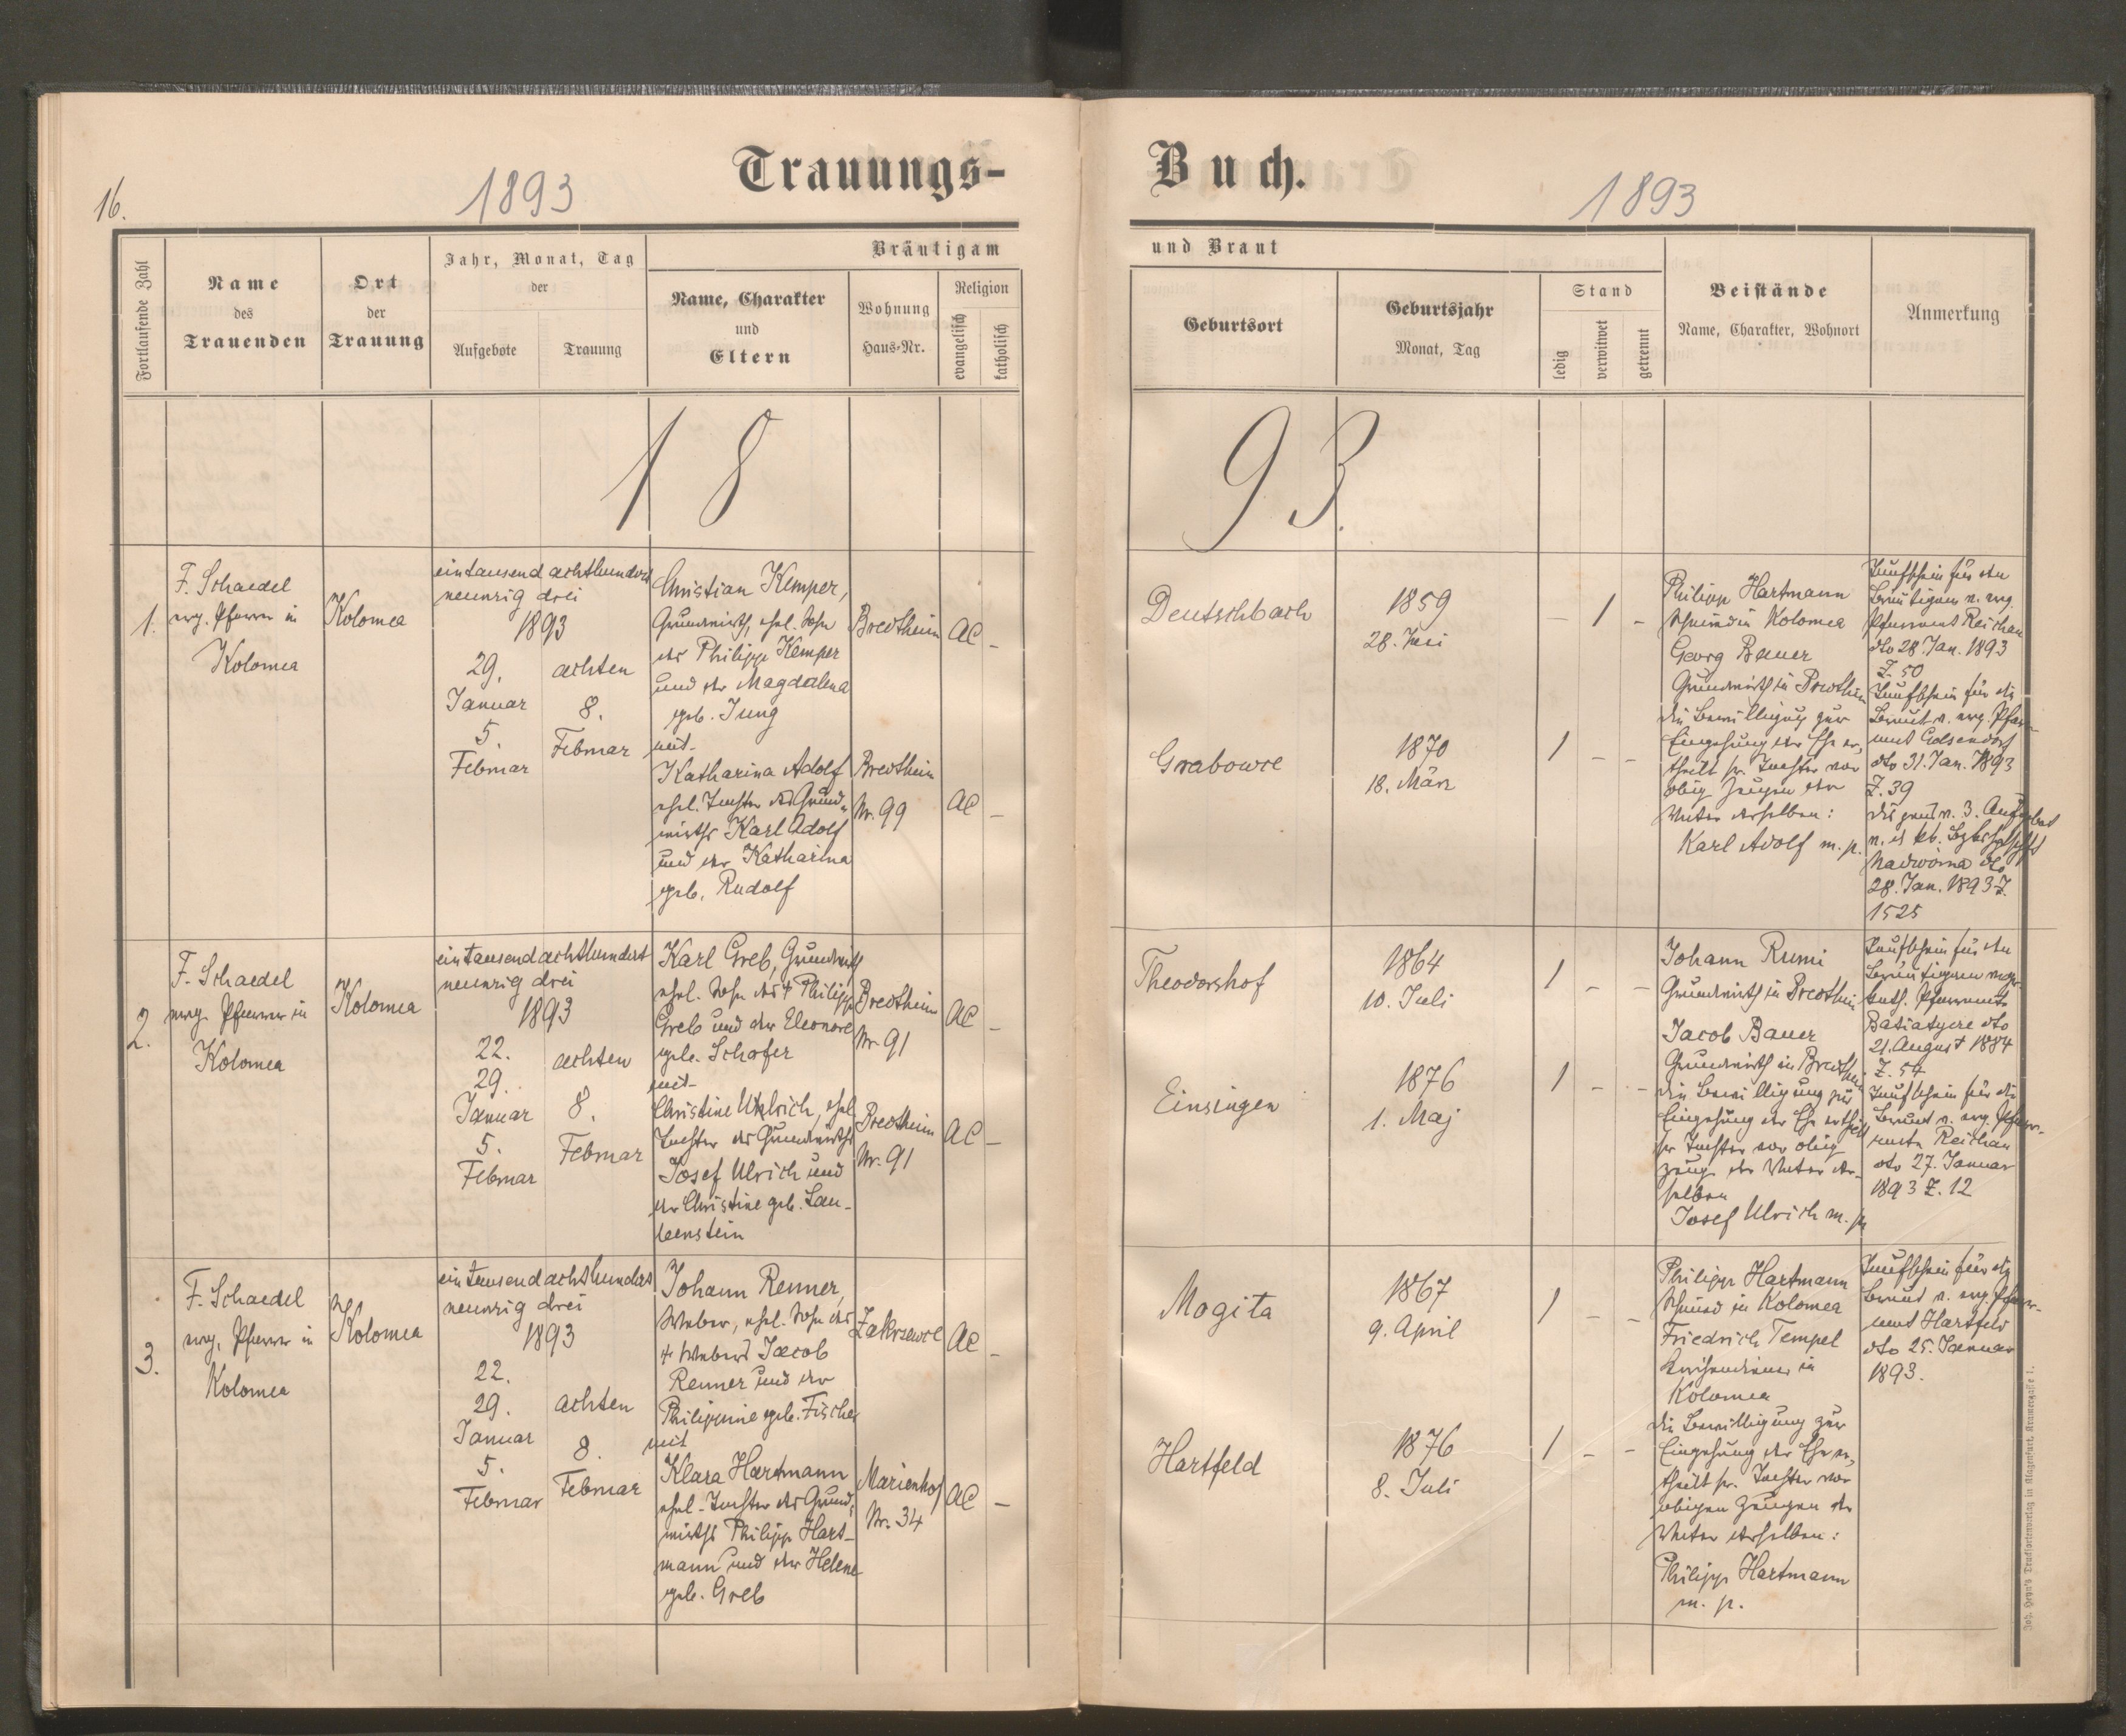 16.
1893
Trauungs-
Buch.
1893
Fortlaufende Zahl
Name
des
Trauenden
Ort
der
Trauung
Jahr, Monat, Tag
der
Aufgebote
Trauung
Bräutigam
Name, Charakter
und
Eltern
Wohnung
Haus-Nr.
Religion
evangelisch
katholisch
und Braut
Geburtsort
Geburtsjahr
Monat, Tag
Stand
ledig
verwitwet
getrennt
Beistände
Name, Charakter, Wohnort
Anmerkung
18
93.
1.
F. Schaedel
evg. Pfarrer in
Kolomea
Kolomea
eintausend achthundert
neunzig drei
1893
29.
Januar
5.
Februar
achten
8.
Februar
Christian Kemper,
Grundwirth, ehel. Sohn
des Philipp Kemper
und der Magdalena
geb. Jung
mit
Katharina Adolf
ehel. Tochter des Grund-
wirths Karl Adolf
und der Katharina
geb. Rudolf
Bredtheim
AC -
Bredtheim
Nr. 99
AC -
Deutschbach
1859
28. Juni
- 1 -
Grabowce
1870
18. März
1 - -
Philipp Hartmann
Schmied in Kolomea
Georg Bauer
Grundwirth in Bredtheim
die Bewilligung zur
Eingehung der Ehe er,
theilt sr. Tochter vor
obig Zeugen der
Vater derselben:
Karl Adolf m. p.
Taufschein für den
Bräutigam v. evg.
Pfarramt Reichau
dto 28. Jan. 1893
Z. 50
Taufschein für die
Braut v. evg. Pfarr-
amt Gelsendorf
dto 31. Jan. 1893
Z. 39
v. 3. Aufgebot
Nadworna dto
28. Jan. 1893 Z.
1525
2.
F. Schaedel
evg. Pfarrer in
Kolomea
Kolomea
eintausend achthundert
neunzig drei
1893
22.
29.
Januar
5.
Februar
achten
8.
Februar
Karl Greb, Grundwirth
ehel. Sohn des † Philipp
Greb und der Eleonore
geb. Schafer
mit
Christine Ulrich, ehel.
Tochter des Grundwirths
Josef Ulrich und
der Christine geb. Lau-
benstein
Bredtheim
Nr. 91
AC -
Bredtheim
Nr. 91
AC -
Theodorshof
1864
10. Juli
1 - -
Einsingen
1876
1. Maj
1 - -
Johann Rumi
Grundwirth in Bredtheim
Jacob Bauer
Grundwirth in Bredtheim
die Bewilligung zur
Eingehung der Ehe ertheilt
sr Tochter vor obig
Zeug. der Vater der-
selben
Josef Ulrich m. p.
Taufschein für den
Bräutigam v.
kath. Pfarramte
Batiatycze dto
21. August 1884
Z. 54
Taufschein für die
Braut v. evg. Pfarr-
amte Reichau
dto 27. Januar
1893 Z. 12
3.
F. Schaedel
evg. Pfarrer in
Kolomea
Kolomea
eintausend achthundert
neunzig drei
1893
22.
29.
Januar
5.
Februar
achten
8.
Februar
Johann Renner,
Weber, ehel. Sohn des
† Webers Jacob
Renner und der
Philippine geb. Fischer
mit
Klara Hartmann
ehel. Tochter des Grund,
wirths Philipp Hart-
mann und der Helene
geb. Greb
Zakrzewce
AC -
Marienhof
Nr. 34
AC -
Mogita
1867
9. April
1 - -
Hartfeld
1876
8. Juli
1 - -
Philipp Hartmann
Schmied in Kolomea
Friedrich Tempel
Kirchendiener in
Kolomea
die Bewilligung zur
Eingehung der Ehe er,
theilt sr. Tochter vor
obigen Zeugen der
Vater derselben:
Philipp Hartmann
m. p.
Taufschein für die
Braut v. evg. Pfarr-
amt Hartfeld
dto 25. Januar
1893.
Joh. Heyn's Drucksortenverlag in Klagenfurt, Kramergasse 1.